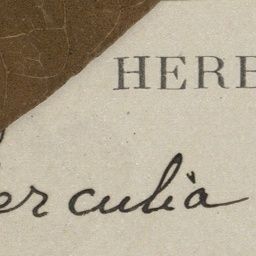 HERB
erculia